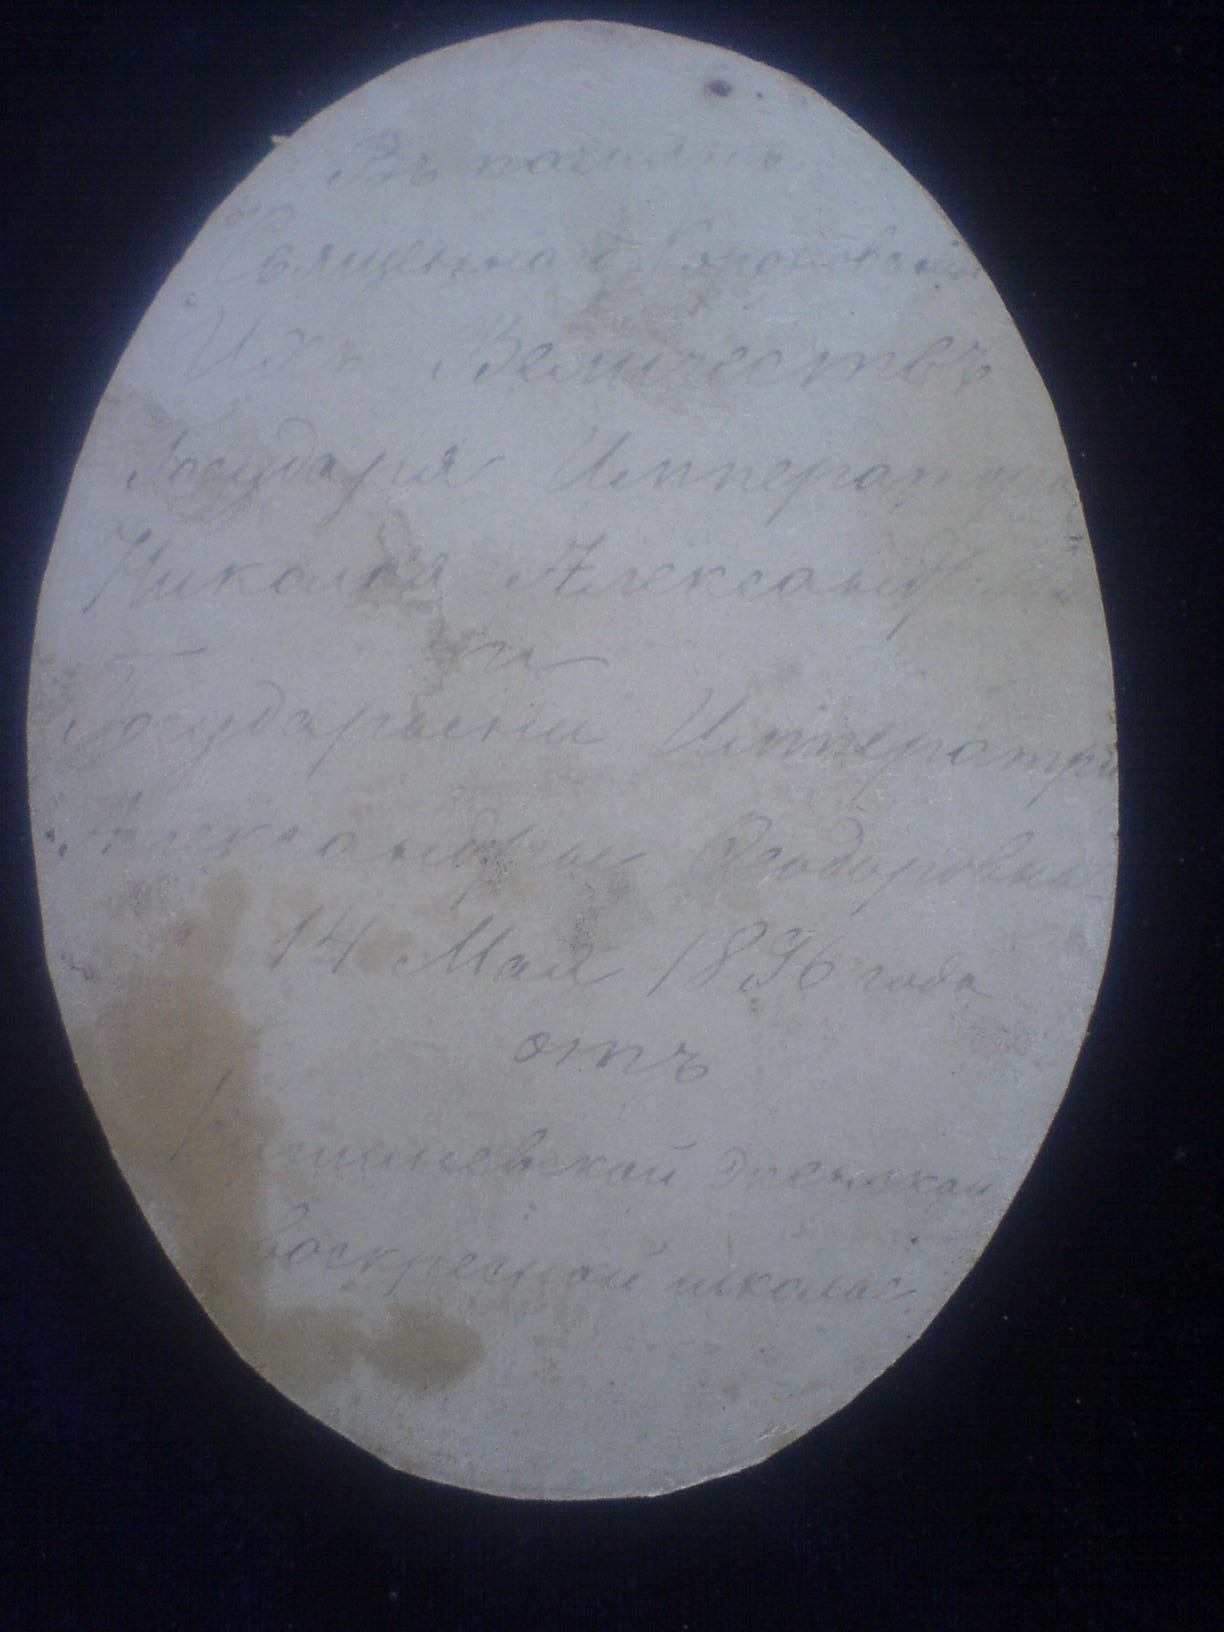 Въ память
Священнаго Коронованія
Ихъ Величествъ
Государя Императора
Николая Александровича
и
Государыни Императри
Александры Ѳеодоровны
14 Мая 1896 года
отъ
Кишиневской женской
воскресной школы